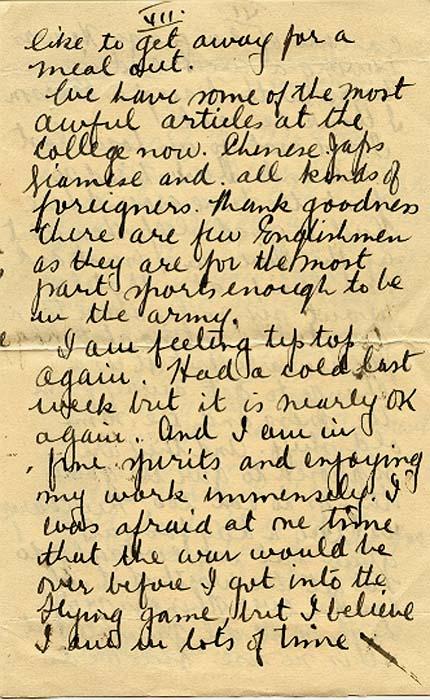 VII.
like to get away for a
meal out.
We have some of the most
awful articles at the
college now. Chenese. Japs
Siamese and. all kinds of
foreigners. Thank goodness
there are few Englishmen
as they are for the most
part sports enough to be
in the army.
I am feeling tip top
again. Had a cold last
week but it is nearly OK
again. And I am in
fine spirits and enjoying
my work immensely. I
was afraid at one time
that the war would be
over before I got into the
flying game, but I believe
I am in lots of time